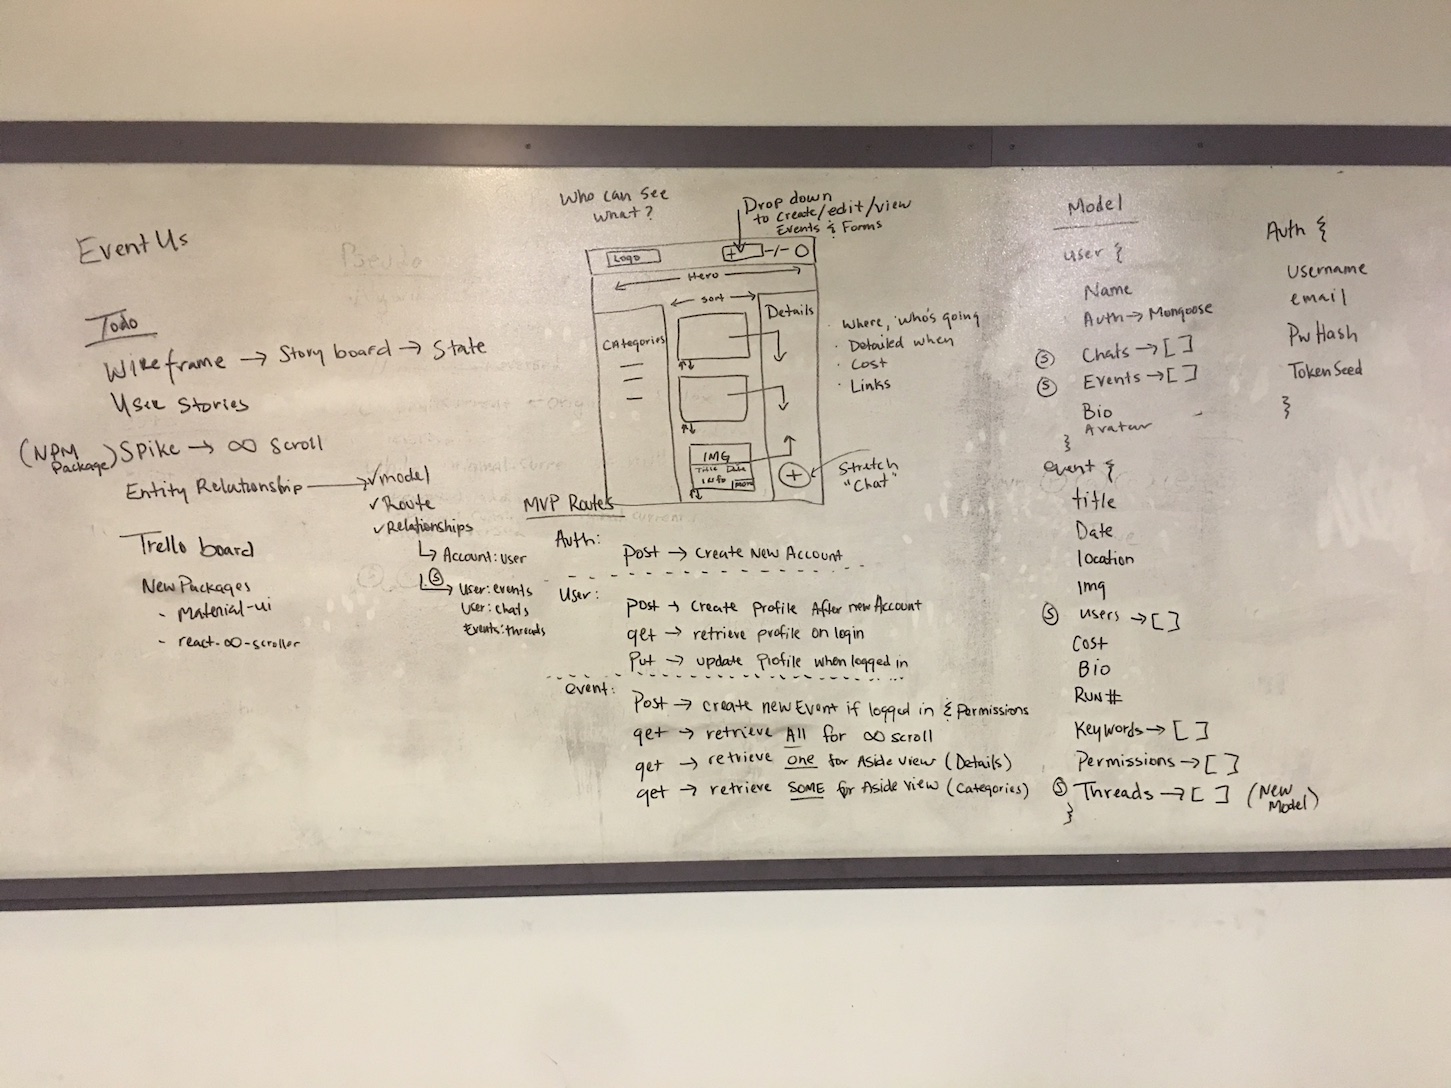 Event Us
Todo
Wireframe → Story board → State
User Stories
(NPM Package) Spike → ∞ Scroll
Entity Relationship → ✓model
✓Route
✓Relationships
↳ Account:user
Ⓢ ↳ User:events
User:chats
Events:threads
Trello board
New Packages
- Material-ui
- react-∞-scroller
Who can see
what?
Drop down
to create/edit/view
Events & Forms
Logo
+
-/-
Hero
Sort
Categories
Details
IMG
Title Date
Info
more
+
· Where, who's going
· Detailed when
· Cost
· Links
Stretch
"Chat"
MVP Routes
Auth:
Post → Create New Account
User:
Post → Create Profile After new Account
get → retrieve profile on login
Put → update Profile when logged in
event:
Post → create new Event if logged in & Permissions
get → retrieve All for ∞ scroll
get → retrieve one for Aside view (Details)
get → retrieve SOME for Aside view (Categories)
Model
user {
Name
Auth → Mongoose
Ⓢ Chats → [ ]
Ⓢ Events → [ ]
Bio
Avatar
}
event {
title
Date
location
Img
Ⓢ users → [ ]
Cost
Bio
Run #
Keywords → [ ]
Permissions → [ ]
Ⓢ Threads → [ ] (New Model)
}
Auth {
Username
email
PwHash
TokenSeed
}